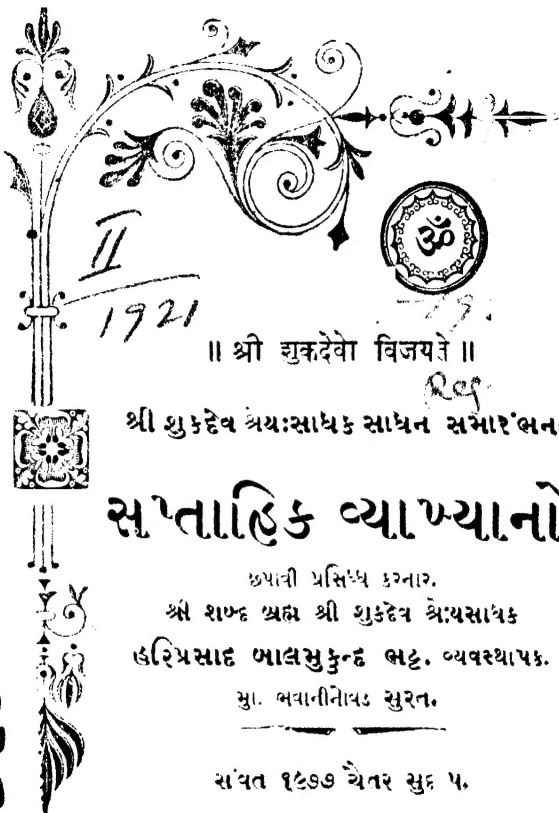 ॐ
II
1921
॥ श्री शुकदेवो विजयते ॥
Reg.
શ્રી શુકદેવ શ્રેયઃસાધક સાધન સમારંભન
સપ્તાહિક વ્યાખ્યાનો
છપાવી પ્રસિધ્ધ કરનાર.
શ્રી શબ્દ બ્રહ્મ શ્રી શુકદેવ શ્રેયસાધક
હરિપ્રસાદ બાલમુકુન્દ ભટ્ટ. વ્યવસ્થાપક.
મુા. ભવાનીનોવડ સુરત.
સંવત ૧૯૭૭ ચૈતર સુદ ૫.